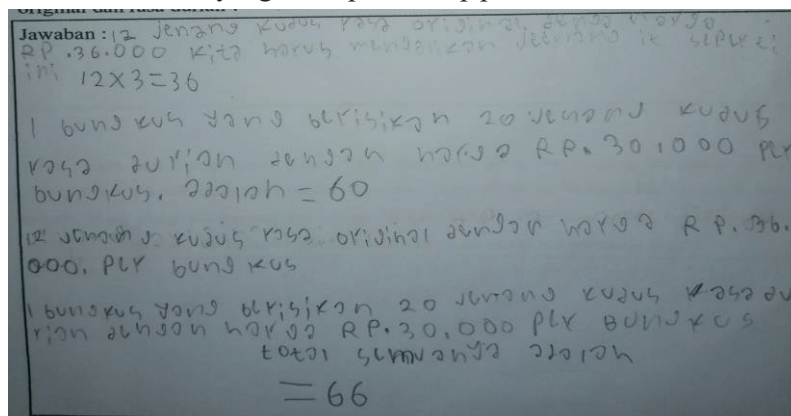 original dan rasa durian :
Jawaban : 12 jenang kudus rasa original denga harga
RP .36.000 kita harus mengalikan jeenang it seperti
ini
12x3=36
1 bungkus yang berisikan 20 jenang kudus
rasa durian dengan harga RP. 30.000 per
bungkus. adalah = 60
12 jenang kudus rasa original dengan harga RP. 36.
000. per bungkus
1 bungkus yang berisikan 20 jenang kudus rasa du
rian dengan harga RP. 30.000 per Bungkus
total semuanya adalah
= 66